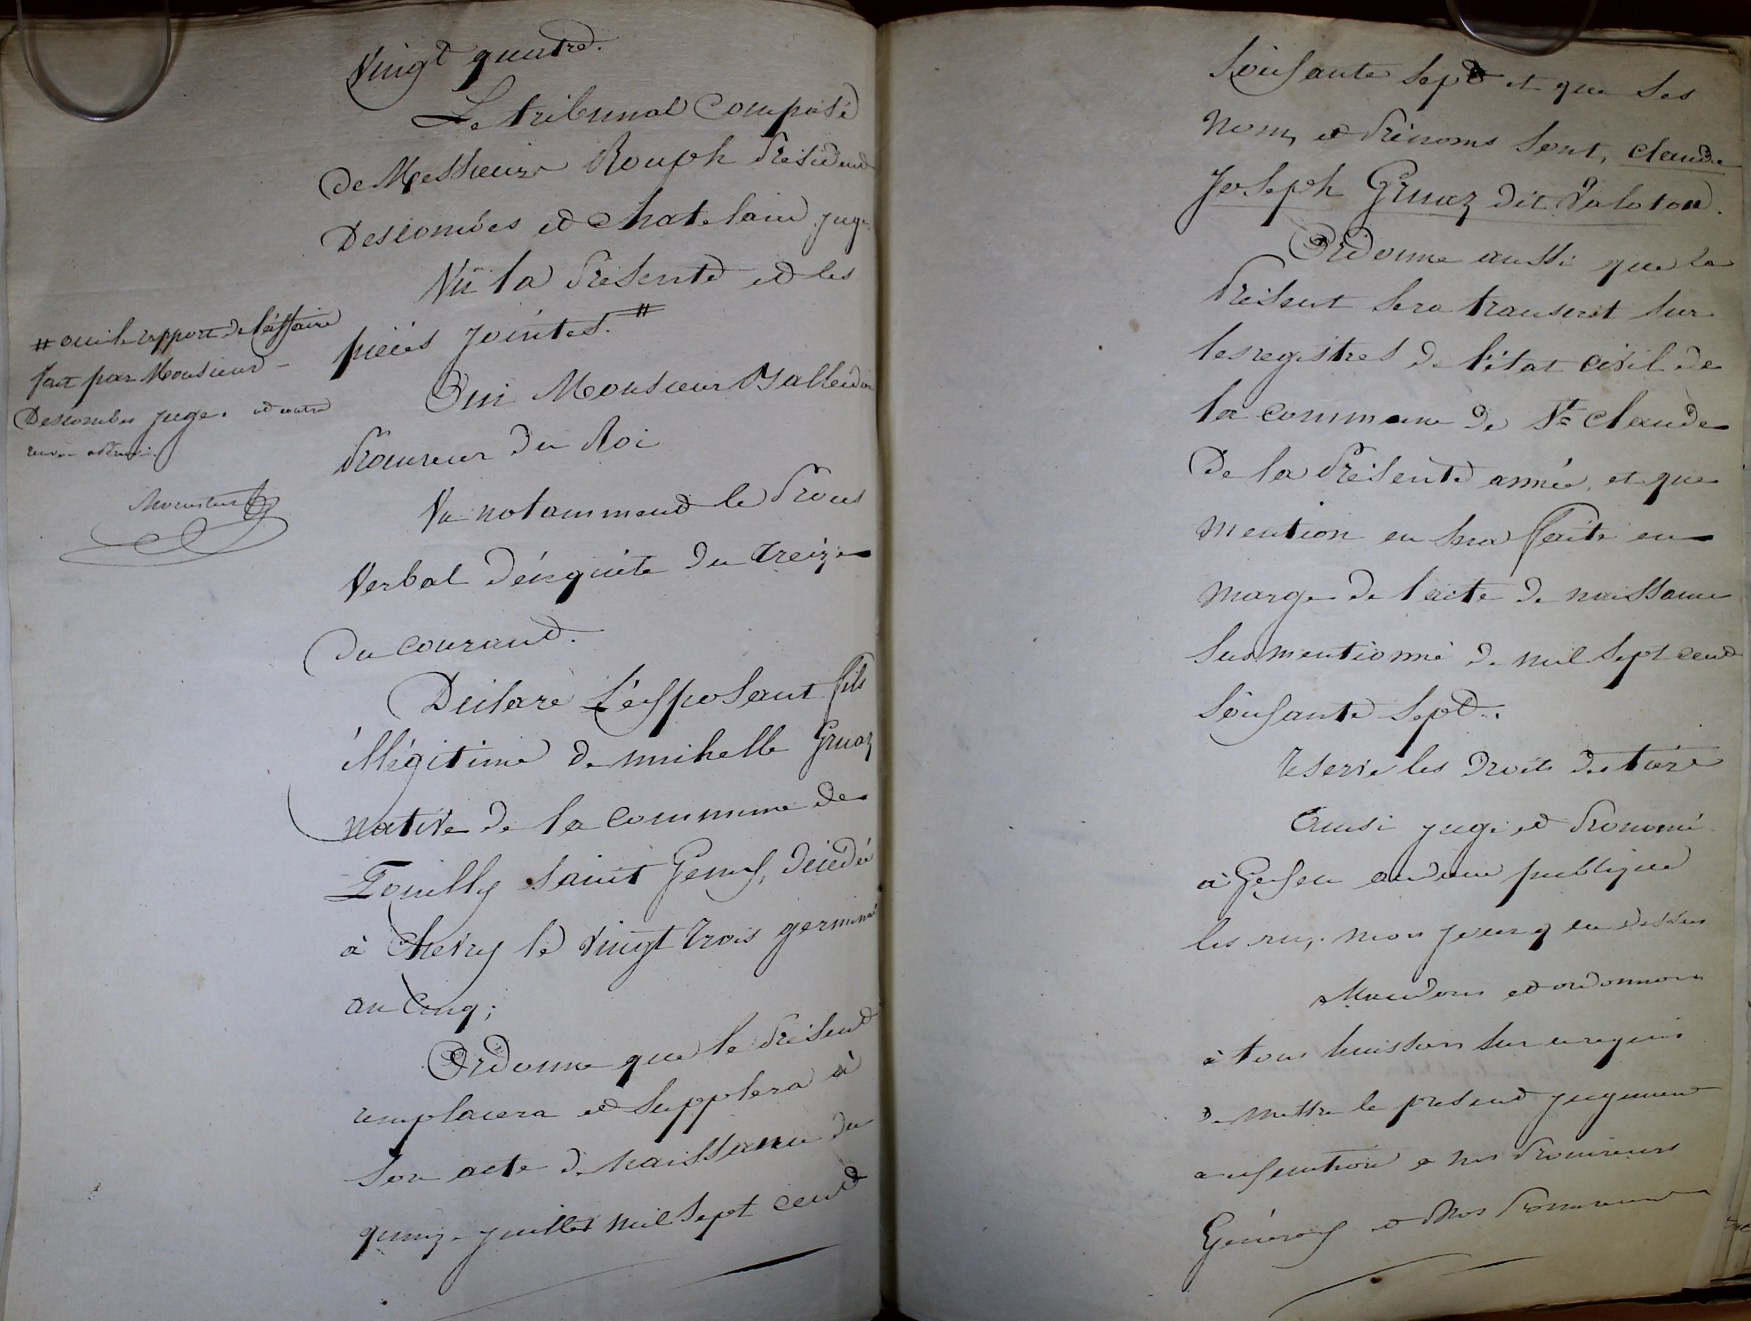 Vingt quatre.
Le tribunal Composé
De Messieurs Rouph Président
Descombes et Chatelain juge
Vû la Présente et les
pièces jointes. #
Oui Monsieur Balleidier
Procureur du Roi
Vu notamment le Procès
Verbal d'énquête du treize
du courant.
Déclare L'éxposant fils
illégitime de michelle Gruaz
native de la Commune de
Pouilly saint Genix, décédée
à Chevry le vingt trois germinal
an Cinq;
Ordonne que le Présent
remplacera et Suppléra à
son acte de Naissance du
quinze juillet mil sept cent
# oui le rapport de l'affaire
fait par Monsieur
Descombes juge.
Soixante Sept et que Ses
Noms et Prénoms Sont, Claude
Joseph Gruaz dit Valoton.
Ordonne aussi que le
Présent sera transcrit sur
les registres de l'état civil de
la commune de St. Claude
De la Présente année, et que
mention en sera faite en
marge de l'acte de naissance
Susmentionné de mil sept cent
Soixante Sept.
Réserve les droits des tiers
Ainsi jugé et Prononcé
à Gex en audience publique
les an, mois jour q en dessus
Mandons et ordonnons
à tous huissiers sur ce requis
de mettre le présent jugement
a exécution a nos Procureurs
Généraux et Nos Procureurs